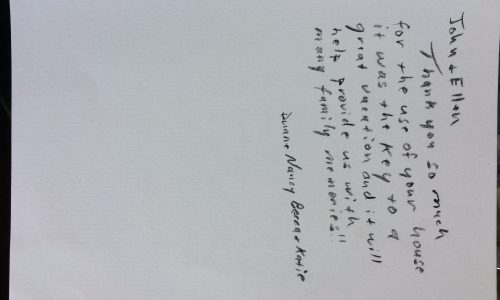 John & Ellen
Thank you so much
for the use of your house
it was the key to a
great vacation and it will
help provide us with
many family memories!!
Duane Nancy & Katie